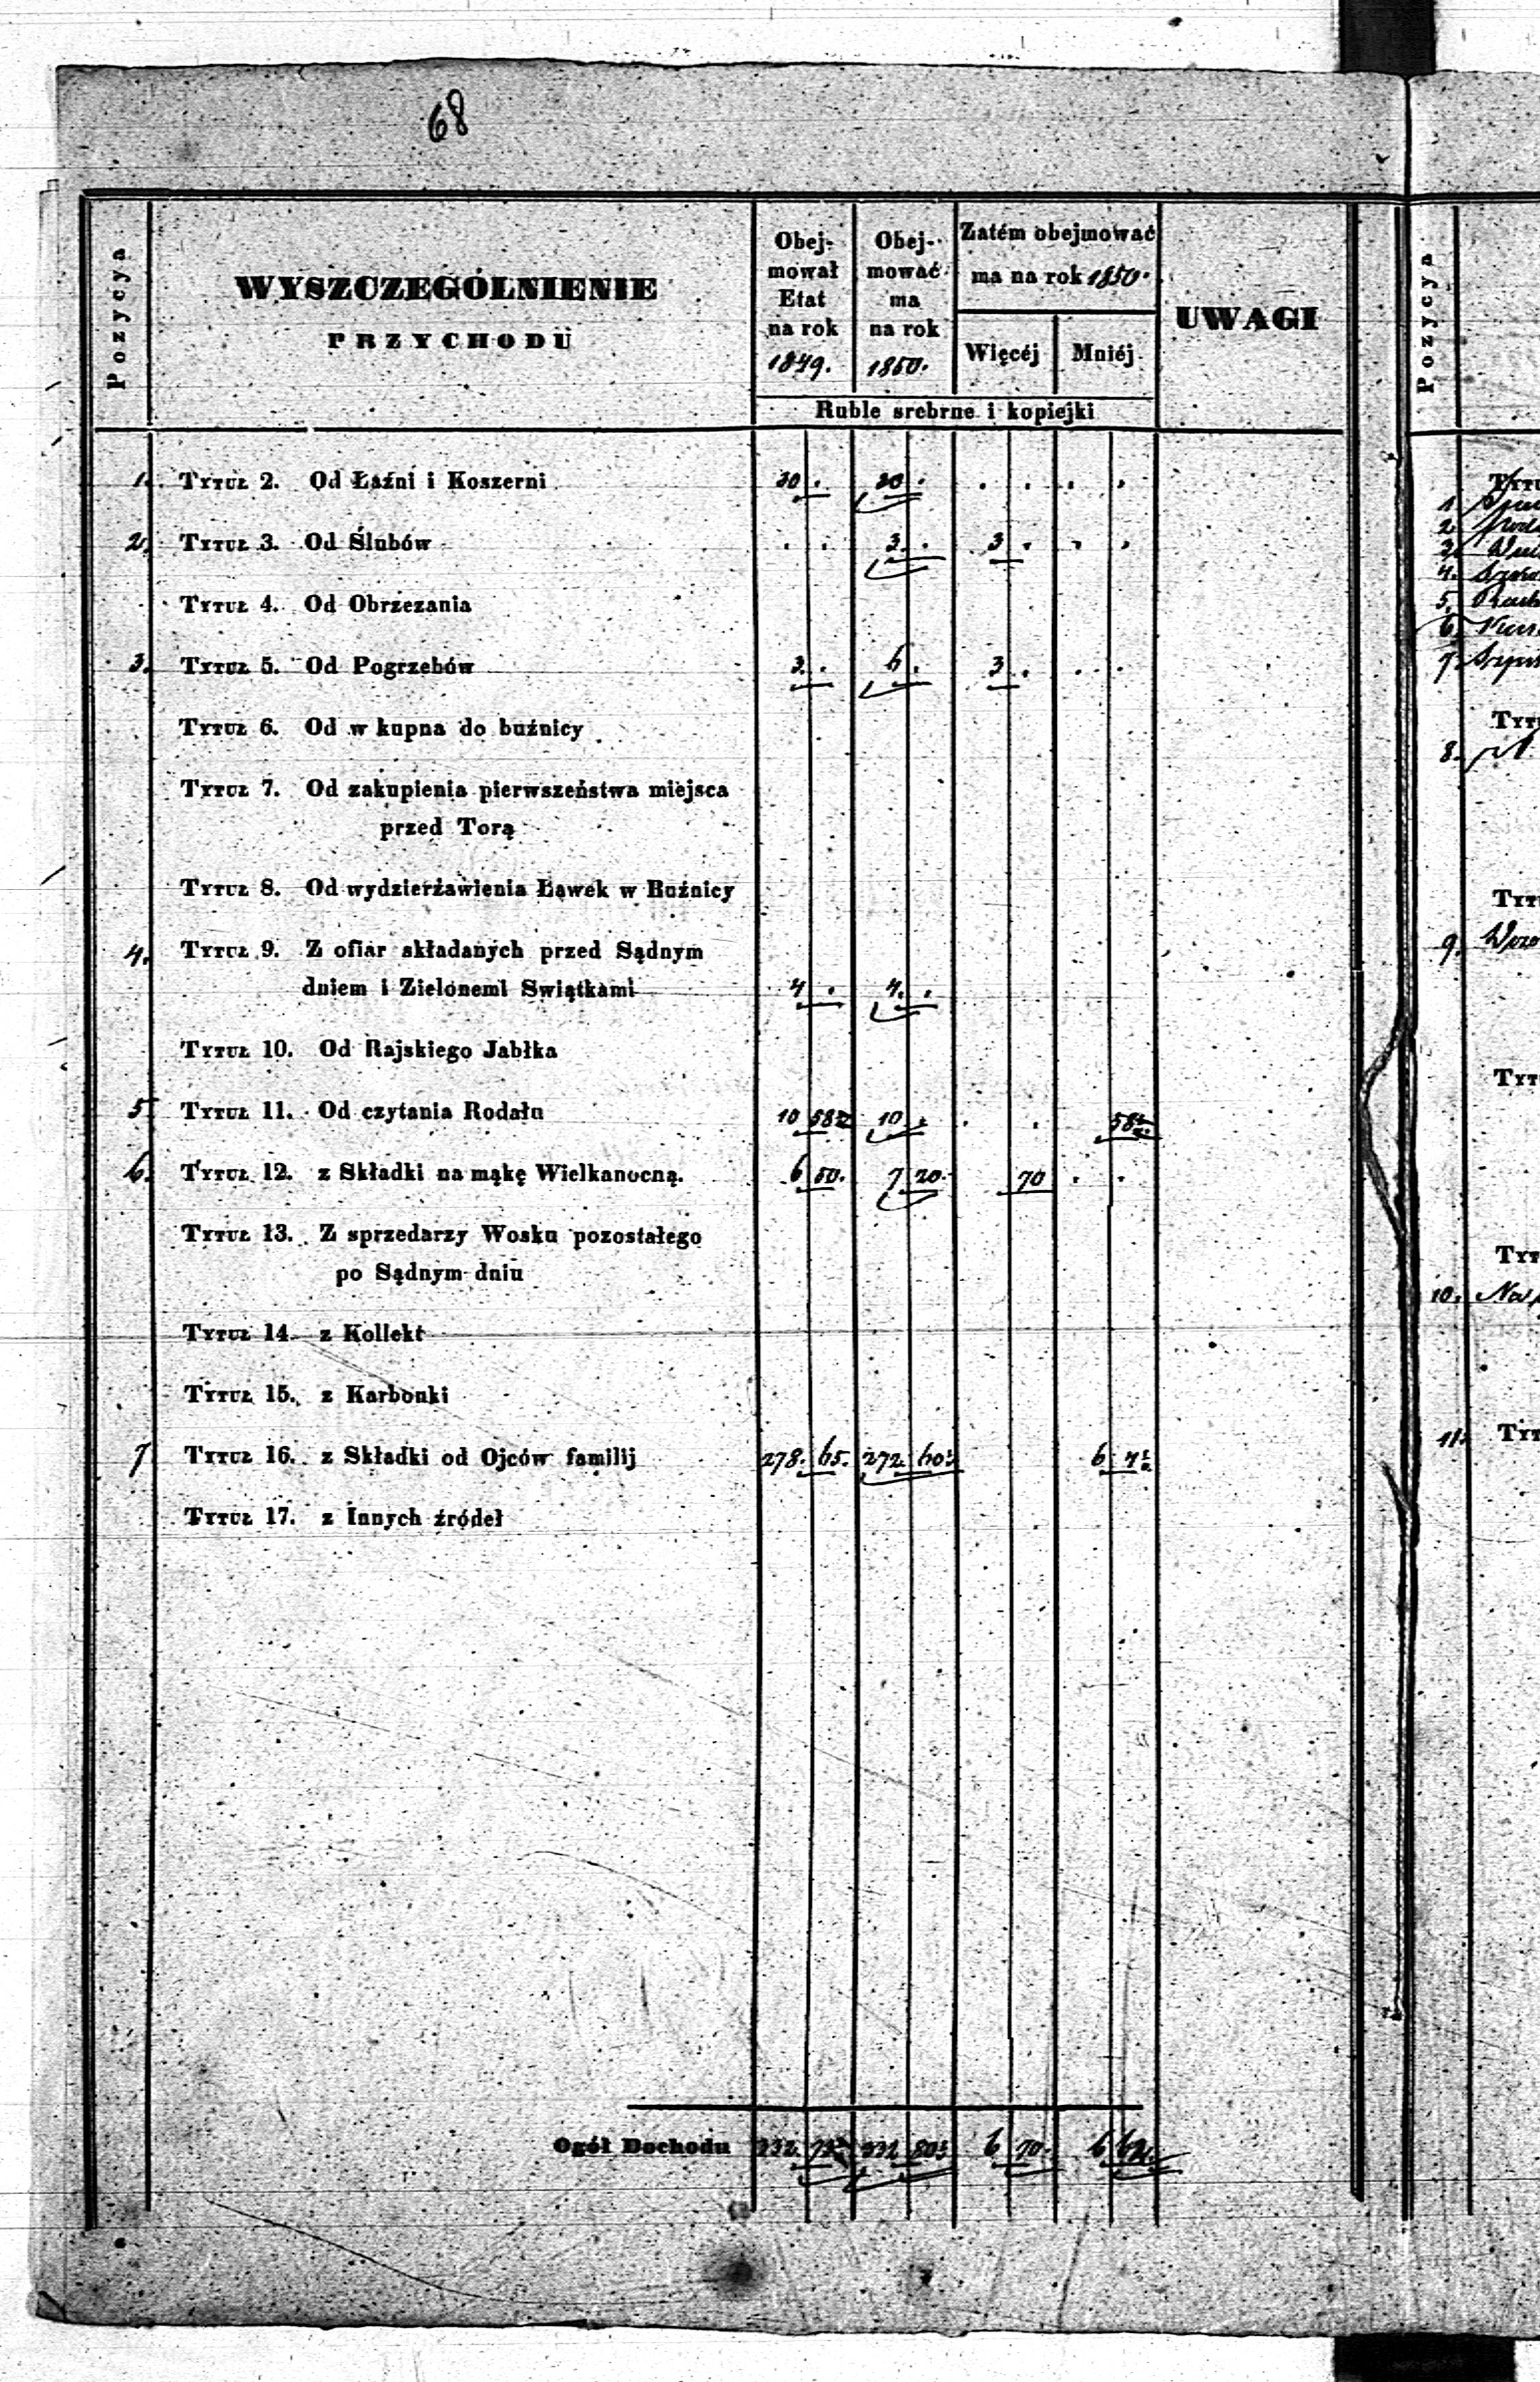 68
Pozycya
WYSZCZEGÓLNIENIE
PRZYCHODU
Obej-
mował
Etat
na rok
1849.
Obej-
mować
ma
na rok
1850.
Zatém obejmować
ma na rok 1850.
Więcéj
Mniéj
UWAGI
Ruble srebrne i kopiejki
1. Tytuł 2. Od Łaźni i Koszerni 30 . 30 .
2. Tytuł 3. Od Ślubów . . 3. . 3 .
Tytuł 4. Od Obrzezania
3. Tytuł 5. Od Pogrzebów 3. . 6 . 3 .
Tytuł 6. Od w kupna do buźnicy
Tytuł 7. Od zakupienia pierwszeństwa miejsca
przed Torą
Tytuł 8. Od wydzierżawienia Ławek w Buźnicy
4. Tytuł 9. Z ofiar składanych przed Sądnym
dniem i Zielonemi Swiątkami 4 . 4. .
Tytuł 10. Od Rajskiego Jabłka
5 Tytuł 11. Od czytania Rodału 10 58½ 10 . . . 58½
6. Tytuł 12. z Składki na mąkę Wielkanocną. 6 50. 7 20. 70 . .
Tytuł 13. Z sprzedarzy Wosku pozostałego
po Sądnym dniu
Tytuł 14. z Kollekt
Tytuł 15. z Karbonki
7 Tytuł 16. z Składki od Ojców familij 278. 65. 272. 60½ 6 4½
Tytuł 17. z Innych źródeł
Ogół Dochodu 332. 73½ 332 80½ 6 70. 6 63.
Pozycya
1
2.
3.
4.
5.
6.
7.
8.
9.
10.
11.